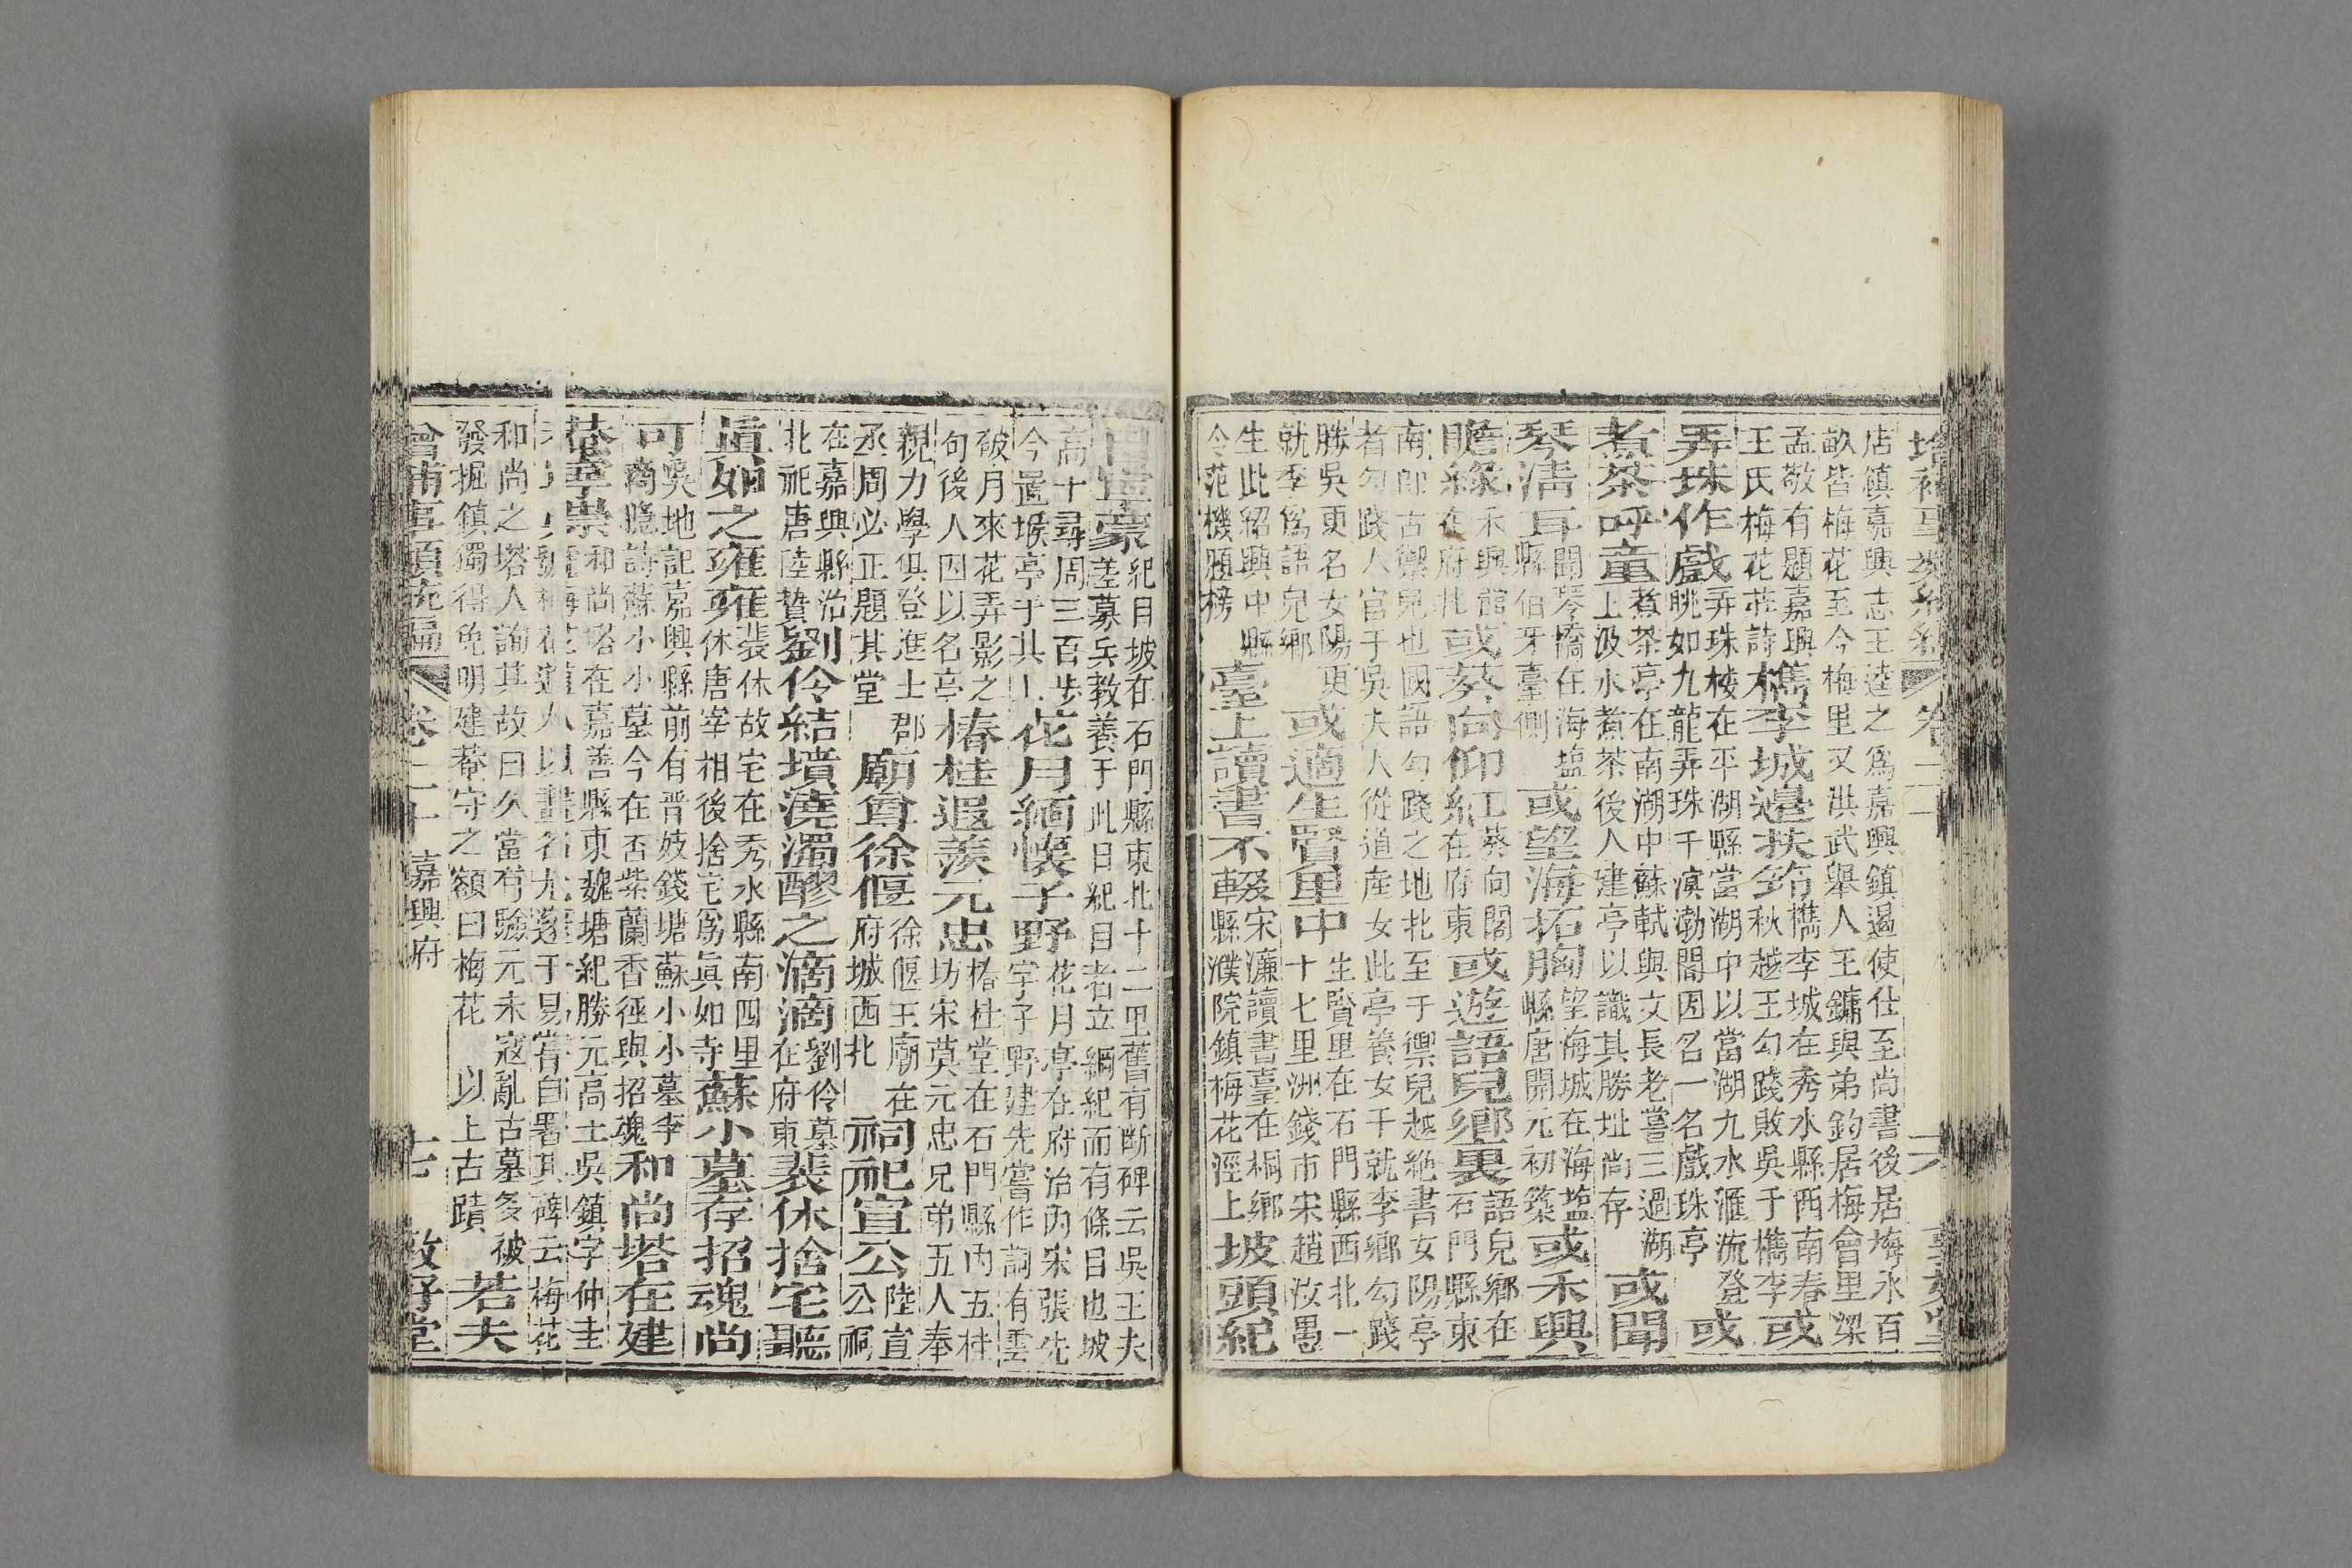 店鎮嘉興志王逵之為嘉興鎮遏使仕至尚書後居梅水百
畝皆梅花至今梅里又洪武舉人王鏞與弟釣居梅會里梁
孟敬有題嘉興
王氏梅花莊詩
檇李城邉扶笻
檇李城在秀水縣西南春
秋越王勾踐敗吳于檇李
或
弄珠作戲
弄珠樓在平湖縣當湖中以當湖九水滙流登
眺如九龍弄珠千瀕渤閣因名一名戲珠亭
或
煮茶呼童
煮茶亭在南湖中蘇軾與文長老嘗三過湖
上汲水煮茶後人建亭以識其勝址尚存
或聞
琴淸耳
聞琴橋在海塩
縣伯牙臺側
或望海拓胸
望海城在海塩
縣唐開元初築
或禾興
瞻緣
禾興館
在府北
或葵向仰
江葵向閣
在府東
或遊語兒鄉裏
語兒鄉在
石門縣東
南即古禦兒也國語勾踐之地北至于禦兒越絶書女陽亭
者勾踐人官于吳夫人從道産女此亭養女于就李鄉勾踐
勝吳更名女陽更
就李為語兒鄉
或適生賢里中
生賢里在石門縣西北一
十七里洲錢市宋趙汝愚
生此紹興中縣
令范機題榜
臺上讀書不輟
宋濂讀書臺在桐鄉
縣濮院鎮梅花涇上
坡頭紀
目豈豪
紀目坡在石門縣東北十二里舊有斷碑云吳王夫
差募兵教養于此日紀目者立綱紀而有條目也坡
高十尋周三百步
今置堠亭于其上
花月緬懷子野
花月亭在府治內宋張先
字子野建先嘗作詞有雲
破月來花弄影之
句後人因以名亭
椿桂遐羨元忠
椿桂堂在石門縣內五桂
坊宋莫元忠兄弟五人奉
親力學俱登進士郡
丞周必正題其堂
廟尊徐偃
徐偃王廟在
府城西北
祠祀宣公
陸宣
公祠
在嘉興縣治
北祀唐陸贄
劉伶結墳澆濁醪之滴滴
劉伶墓
在府東
裴休捨宅聽
眞如之雍雍
裴休故宅在秀水縣南四里
休唐宰相後捨宅為眞如寺
蘇小墓存招魂尚
可
吳地記嘉興縣前有晋妓錢塘蘇小小墓李
商隱詩蘇小小墓今在否紫蘭香徑與招魂
和尚塔在建
菴寧祟
和尚塔在嘉善縣東魏塘紀勝元高士吳鎮字仲圭
和尚之塔人詢其故曰久當有驗元末寇亂古墓多被
發掘鎮獨得免明建菴守之額曰梅花
以上古蹟
若夫
卷二十 嘉興府 十七 敬好堂